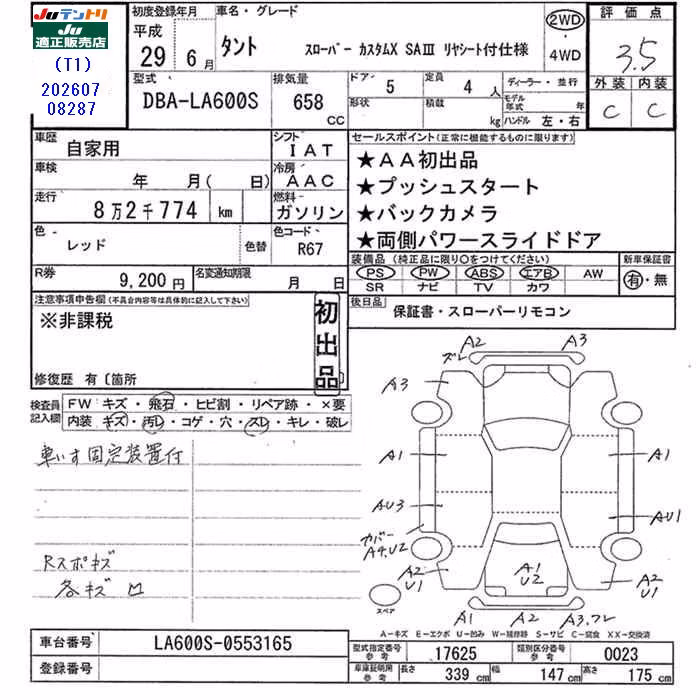 JUテントリ
JU
適正販売店
(T1)
202607
08287
初度登録年月
平成
29 6月
車名・グレード
タント
スローパー カスタムX SAIII リヤシート付仕様
2WD
4WD
評価点
3.5
外装 内装
C C
型式
DBA-LA600S
排気量
658
CC
ドア
5
定員
4人
形状
積載
kg
ディーラー・並行
モデル年式 年
ハンドル 左・右
車歴
自家用
シフト
IAT
車検
年 月( 日)
冷房
AAC
走行
8万2千774 km
燃料
ガソリン
色
レッド
色替
色コード
R67
R券
9,200円
名変通知期限
月 日
セールスポイント(正常に機能するものに限ります)
★AA初出品
★プッシュスタート
★バックカメラ
★両側パワースライドドア
装備品(純正品に限り○をつけてください)
PS PW ABS エアB AW
SR ナビ TV カワ
新車保証書
有・無
後日品
保証書・スローパーリモコン
注意事項申告欄(不具合内容等は具体的に記入して下さい)
※非課税
初出品
修復歴 有〔箇所
検査員記入欄
FW キズ・飛石・ヒビ割・リペア跡・×要
内装 キズ・汚レ・コゲ・穴・スレ・キレ・破レ
車いす固定装置付
Rスポキズ
各キズ 凹
A2 A3
ズレ
A3 A3
A1 A1
AU3 AU1
カバー
A4,U2
A2
U1
A1
U2
A2
U1
スペア
A1 A2 A3,フレ
A-キズ E-エクボ U-凹み W-補修跡 S-サビ C-腐食 XX-交換済
車台番号
LA600S-0553165
登録番号
型式指定番号 参考
17625
類別区分番号 参考
0023
車庫証明用 参考
長さ 339 cm
幅 147 cm
高さ 175 cm